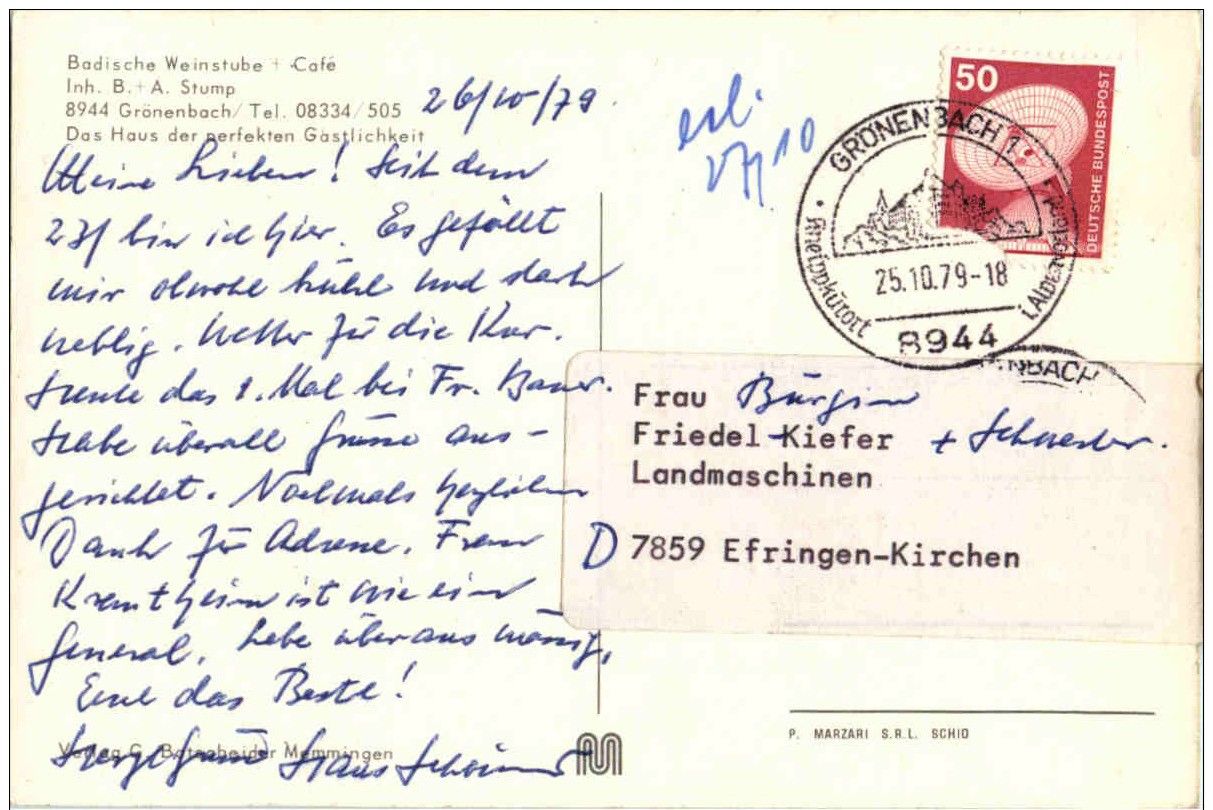 Badische Weinstube + Café
Inh. B. + A. Stump
8944 Grönenbach/ Tel. 08334/505
Das Haus der perfekten Gästlichkeit
26/10/79.
Meine Lieben! Seit dem
23/ bin ich hier. Es gefällt
mir obwohl kühl und stark
neblig. Wetter für die Kur.
Heute das 1. Mal bei Fr. Bauer.
Habe überall Grüsse aus-
gerichtet. Nochmals herzlichen
Dank für Adresse. Frau
ist wie ein
General. Lebe überaus mässig,
Euch das Beste!
Verlag G. Memmingen
Hans
erl.
27/10
50
DEUTSCHE BUNDESPOST
GRÖNENBACH 1
Kneippkurort
25.10.79-18
8944
NBACH
Frau Bürgin
Friedel-Kiefer + Schwester.
Landmaschinen
D 7859 Efringen-Kirchen
P. MARZARI S.R.L. SCHIO